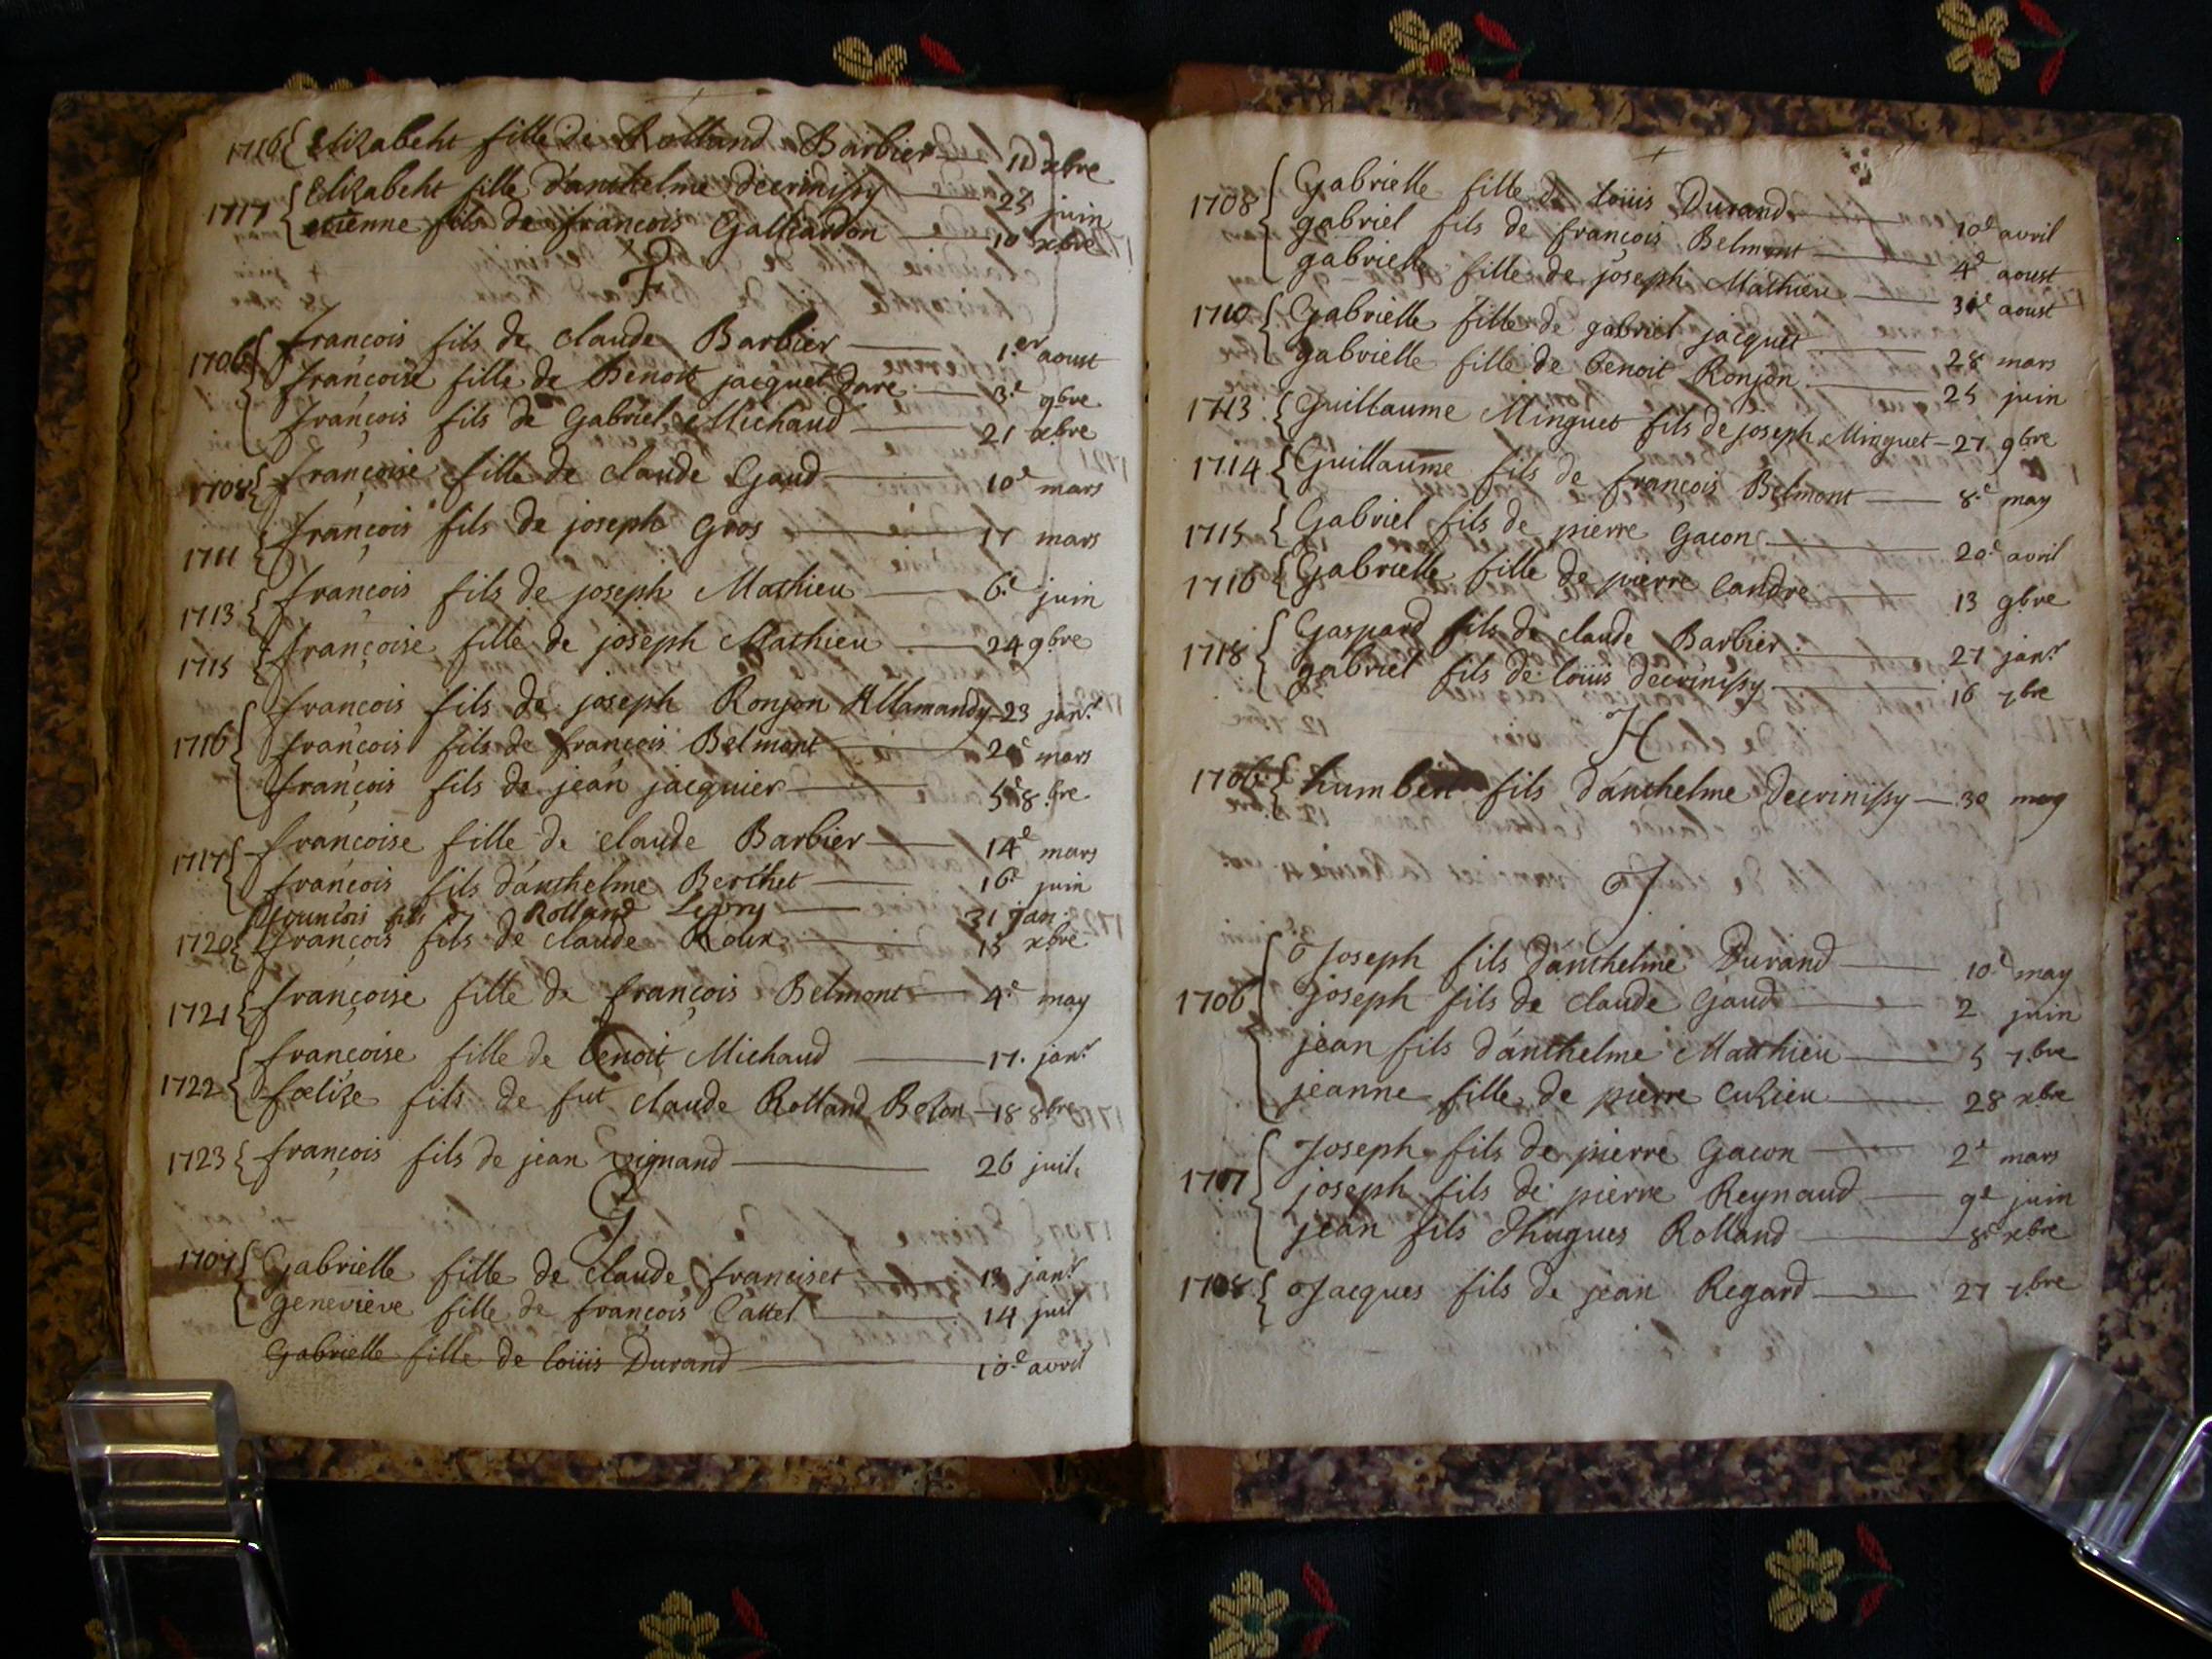 1716 { Elizabeht fille de Rolland Barbier 11 xbre
1717 { Elizabeht fille d'anthelme decrinissy 25 juin
etienne fils de françois Galliardon 10 xbre
F
1706 { françois fils de claude Barbier 1.er aoust
françoise fille de Benoit jacquet dare 3.e 9bre
françois fils de Gabriel Michaud 21 xbre
1708 { françoise fille de claude Gaud 10e mars
1711 { françois fils de joseph Gros 17 mars
1713 { françois fils de joseph Mathieu 6.e juin
1715 { françoise fille de joseph Mathieu 24 9bre
1716 { françois fils de joseph Ronjon Allamandy 23 janr
françois fils de françois Belmont mars
françois fils de jean jacquier 5e 8.bre
1717 { francoise fille de claude Barbier 14e mars
françois fils d'anthelme Berthet 16e juin
fils Rolland 31 jan.
1720 { françois fils de claude Roux 15 xbre
1721 { françoise fille de françois Belmont 4.e may
1722 { françoise fille de benoit Michaud 17. janr
fœlize fils de fut claude Rolland Belon 18 8bre
1723 { françois fils de jean vignand 26 juil.
G
1707 { Gabrielle fille de claude franciset 13 janr
geneviève fille de françois Cattel 14 juil
Gabrielle fille de loüis Durand 10.e avril
1708 { Gabrielle fille de loüis Durand 10e avril
gabriel fils de françois Belmont 4e aoust
gabrielle fille de joseph Mathieu 31e aoust
1710 { Gabrielle fille de gabriel jacquet 28 mars
gabrielle fille de benoit Ronjon 25 juin
1713 { Guillaume Minguet fils de joseph Minguet 27 9bre
1714 { Guillaume fils de françois Belmont 8.e may
1715 { Gabriel fils de pierre Gacon 20e avril
1716 { Gabrielle fille de pierre Candre 13 9bre
1718 { Gaspard fils de claude Barbier 27 janr
gabriel fils de loüis decrinissy 16 7bre
H
1706 { humbert fils d'anthelme decrinissy 30 may
J
1706 { Joseph fils d'anthelme Durand 10e may
joseph fils de claude Gaud 2 juin
jean fils d'anthelme Mathieu 5 7.bre
jeanne fille de pierre Cuzieu 28 xbre
1707 { Joseph fils de pierre Gacon 2e mars
joseph fils de pierre Reynaud 9e juin
jean fils d'hugues Rolland 8e xbre
1708 { Jacques fils de jean Regard 27 7.bre